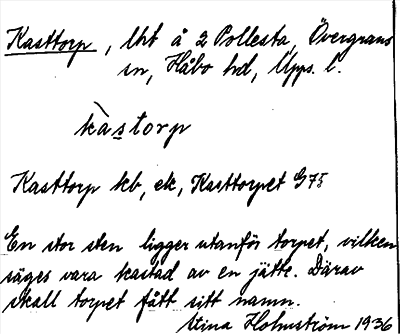 Kasttorp, lht å 2 Pollesta, Övergrans
sn, Håbo hd, Upps. l.
kàstorp
Kasttorp kb, ek, Kasttorpet G75
En stor sten ligger utanför torpet, vilken
säges vara kastad av en jätte. Därav
skall torpet fått sitt namn.
Stina Holmström 1936